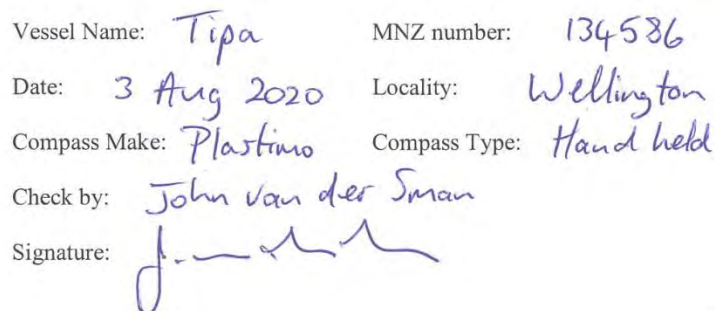 Vessel Name: Tipa MNZ number: 134586
Date: 3 Aug 2020 Locality: Wellington
Compass Make: Plastimo Compass Type: Hand held
Check by: John van der Sman
Signature: